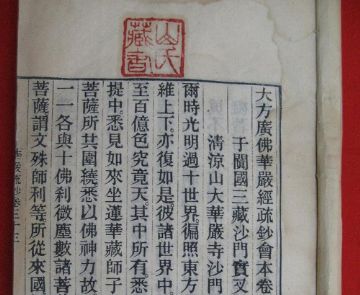 山氏藏書
大方廣佛華嚴經疏鈔會本卷
于闐國三藏沙門實叉
清涼山大華嚴寺沙門
爾時光明過十世界。徧照東方
維上下。亦復如是。彼諸世界中
至百億色究竟天。其中所有悉
提中悉見如來坐蓮華藏師子
菩薩所共圍繞。悉以佛神力故
一一各與十佛剎微塵數諸菩
菩薩謂文殊師利等。所從來國